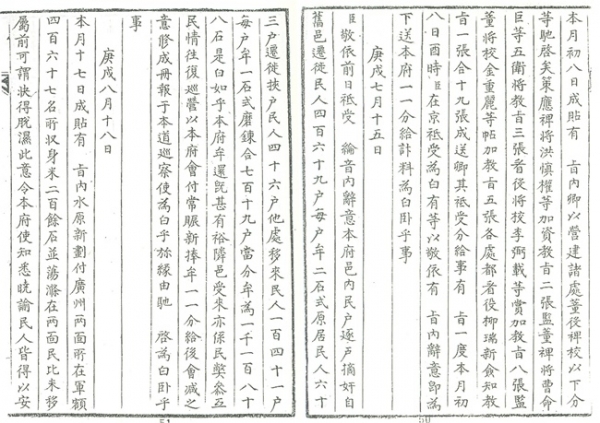 本月初八日成貼有 旨內卿以營建諸處董役裨校以下分
等馳啓矣策應裨將洪愼權等加資教旨二張監董裨將曹命
巨等五衛將教旨三張看役將校李弼載等賞加教旨八張監
董將校金重麗等帖加教旨五張各處都看役柳瑞新僉知教
旨一張合十九張成送卿其祗受分給事有 旨一度本月初
八日酉時臣在京祗受爲白有等以敬依有 旨內辭意卽爲
下送本府一一分給計料爲白卧乎事
庚戌七月十五日
臣敬依前日祗受 綸音內辭意本府邑內民戶逐戶摘奸自
舊邑遷徙民人四百六十九戶每戶牟二石式原居民人六十
三戶遷徙挾戶民人四十六戶他處移來民人一百四十一戶
每戶牟一石式磨鍊合七百十九戶當分牟爲一千一百八十
八石是白如乎本府牟還旣甚有裕隣邑受來亦係民弊叅互
民情往復巡營以本府會付常賑新捧牟一一分給後會減之
意修成冊報于本道巡察使爲白乎旀緣由馳 啓爲白卧乎
事
庚戌八月十八日
本月十七日成貼有 旨內水原新劃付廣州兩面所在軍額
四百六十七名所收身米二百餘石並蕩滌在兩面民比來移
屬前可謂快得脫濕此意令本府使知悉曉諭民人皆得以安